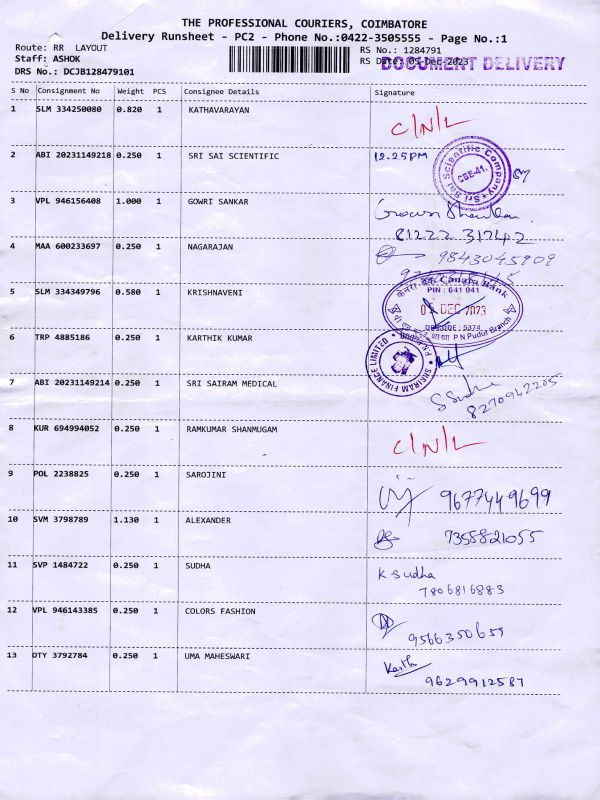 THE PROFESSIONAL COURIERS, COIMBATORE
Delivery Runsheet - PC2 - Phone No.:0422-3505555 - Page No.:1
Route: RR LAYOUT
RS No.: 1284791
Staff: ASHOK
RS Date: 05-Dec-2023
DOCUMENT DELIVERY
DRS No.: DCJB128479101
S No Consignment No Weight PCS Consignee Details Signature
1 SLM 334250080 0.820 1 KATHAVARAYAN C/N/L
2 ABI 20231149218 0.250 1 SRI SAI SCIENTIFIC 12.25PM
Sri Sai Scientific Company
CBE-41.
3 VPL 946156408 1.000 1 GOWRI SANKAR
81222 31742
4 MAA 600233697 0.250 1 NAGARAJAN 9843045909
5 SLM 334349796 0.580 1 KRISHNAVENI
Canara Bank
PIN : 641 041
05 DEC 2023
P N Pudur Branch
6 TRP 4885186 0.250 1 KARTHIK KUMAR
SHRIRAM FINANCE LIMITED
7 ABI 20231149214 0.250 1 SRI SAIRAM MEDICAL S Sudha
8270942205
8 KUR 694994052 0.250 1 RAMKUMAR SHANMUGAM C/N/L
9 POL 2238825 0.250 1 SAROJINI 9677449699
10 SVM 3798789 1.130 1 ALEXANDER 7355821055
11 SVP 1484722 0.250 1 SUDHA K Sudha
7806816883
12 VPL 946143385 0.250 1 COLORS FASHION
9566350655
13 OTY 3792784 0.250 1 UMA MAHESWARI Karth
9629912587